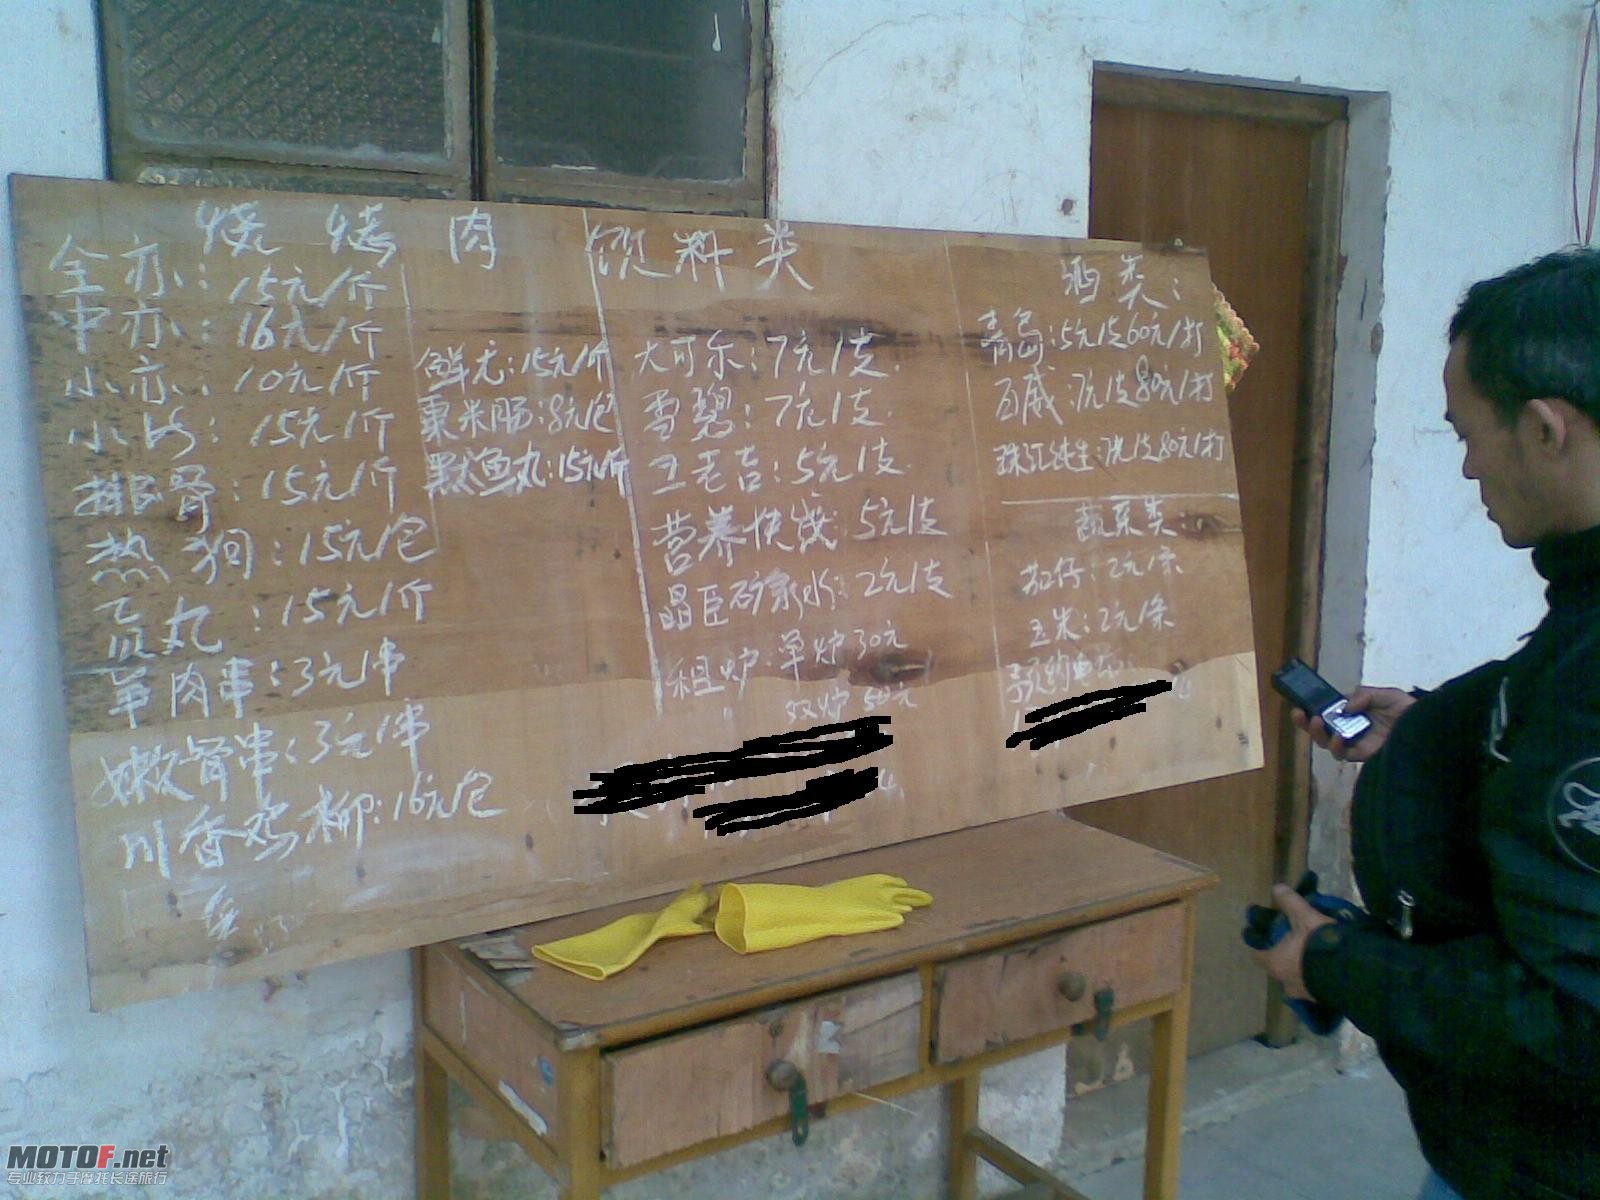 烧烤肉
全亦:15元/斤
中亦:16元/斤
小亦:10元/斤
小沙:15元/斤
排肾:15元/斤
热狗:15元/包
贡丸:15元/斤
羊肉串:3元/串
嫩骨串:3元/串
川香鸡柳:16元/包
鲜尤:15元/斤
粟米肠:8元/包
墨鱼丸:15元/斤
饮料类
大可乐:7元/支.
雪碧:7元/支.
王老吉:5元/支.
营养快线:5元/支
晶臣矿泉水:2元/支
租炉:单炉30元
〃 双炉50元
酒类:
青岛:5元/支60元/打
百威:7元/支80元/打
珠江纯生:7元/支80元/打
蔬菜类
茄仔:2元/条
玉米:2元/条
预约电话:
MOTOF.net
专业致力于摩托长途旅行